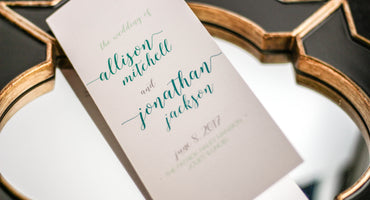 the wedding of
allison
mitchell
and
jonathan
jackson
june 8, 2017